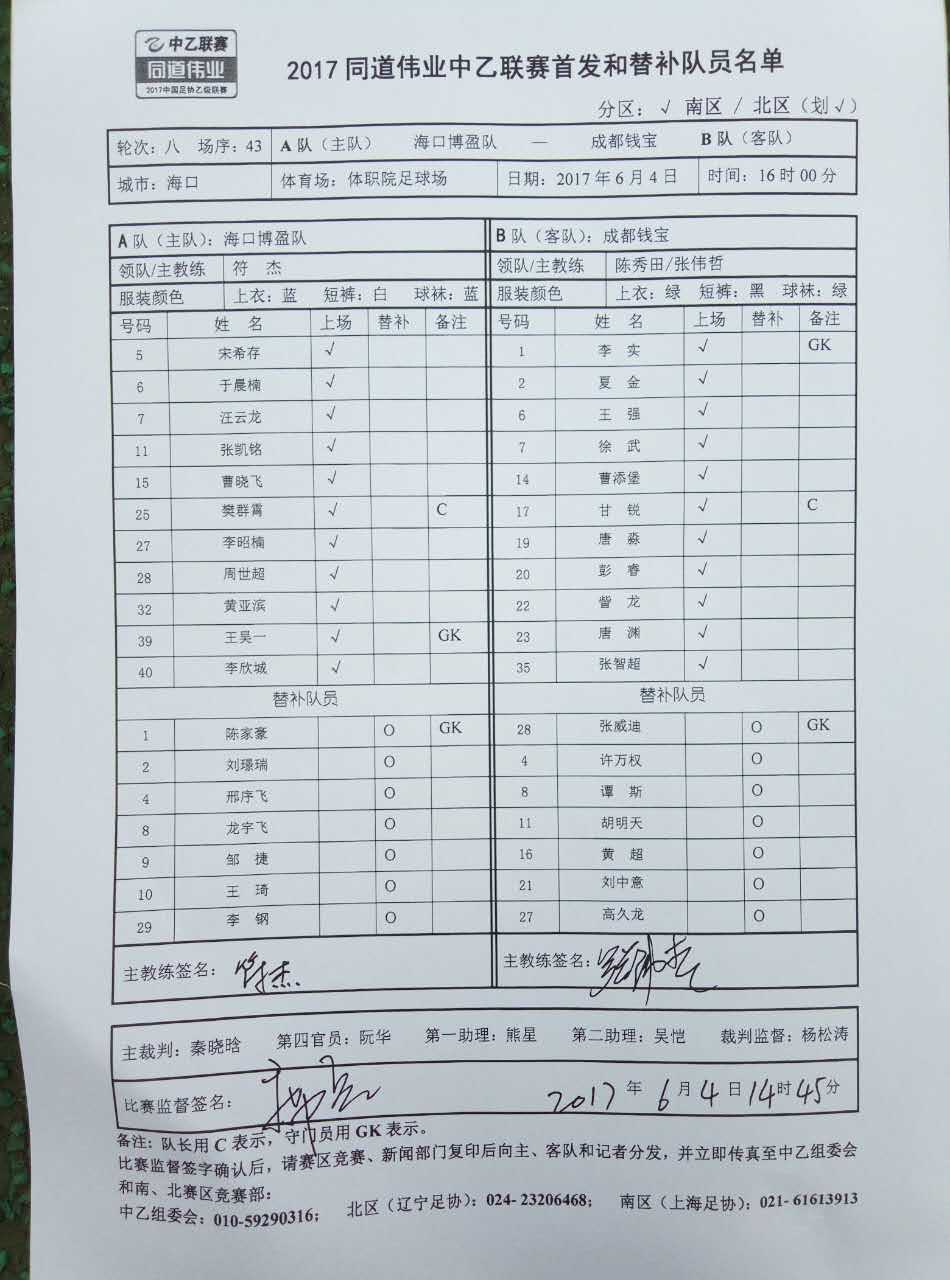 中乙联赛
同道伟业
2017中国足协乙级联赛
2017 同道伟业中乙联赛首发和替补队员名单
分区：√ 南区 / 北区（划√）
轮次：八 场序：43 A 队（主队） 海口博盈队 — 成都钱宝 B 队（客队）
城市：海口 体育场：体职院足球场 日期：2017 年 6 月 4 日 时间：16 时 00 分
A 队（主队）：海口博盈队 B 队（客队）：成都钱宝
领队/主教练 符 杰 领队/主教练 陈秀田/张伟哲
服装颜色 上衣：蓝 短裤：白 球袜：蓝 服装颜色 上衣：绿 短裤：黑 球袜：绿
号码 姓 名 上场 替补 备注 号码 姓 名 上场 替补 备注
5 宋希存 √ 1 李 实 √ GK
6 于晨楠 √ 2 夏 金 √
7 汪云龙 √ 6 王 强 √
11 张凯铭 √ 7 徐 武 √
15 曹晓飞 √ 14 曹添堡 √
25 樊群霄 √ C 17 甘 锐 √ C
27 李昭楠 √ 19 唐 淼 √
28 周世超 √ 20 彭 睿 √
32 黄亚滨 √ 22 訾 龙 √
39 王昊一 √ GK 23 唐 渊 √
40 李欣城 √ 35 张智超 √
替补队员 替补队员
1 陈家豪 O GK 28 张威迪 O GK
2 刘璟瑞 O 4 许万权 O
4 邢序飞 O 8 谭 斯 O
8 龙宇飞 O 11 胡明天 O
9 邹 捷 O 16 黄 超 O
10 王 琦 O 21 刘中意 O
29 李 钢 O 27 高久龙 O
主教练签名：符杰 主教练签名：张伟哲
主裁判：秦晓晗 第四官员：阮华 第一助理：熊星 第二助理：吴恺 裁判监督：杨松涛
比赛监督签名： 2017 年 6 月 4 日 14 时 45 分
备注：队长用 C 表示，守门员用 GK 表示。
比赛监督签字确认后，请赛区竞赛、新闻部门复印后向主、客队和记者分发，并立即传真至中乙组委会
和南、北赛区竞赛部：
中乙组委会：010-59290316； 北区（辽宁足协）：024- 23206468； 南区（上海足协）：021- 61613913